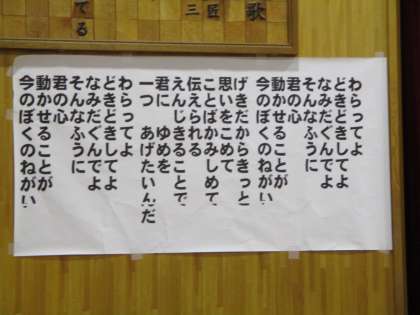 わらってよ
どきどきしてよ
なみだぐんでよ
そんなふうに
君の心
動かせることが
今のぼくのねがい
げきだからきっと
思いをこめて
ことばかみしめて
伝えられる
えんじきることで
君に ゆめを
一つ あげたいんだ
わらってよ
どきどきしてよ
なみだぐんでよ
そんなふうに
君の心
動かせることが
今のぼくのねがい
歌
匠
三
てる